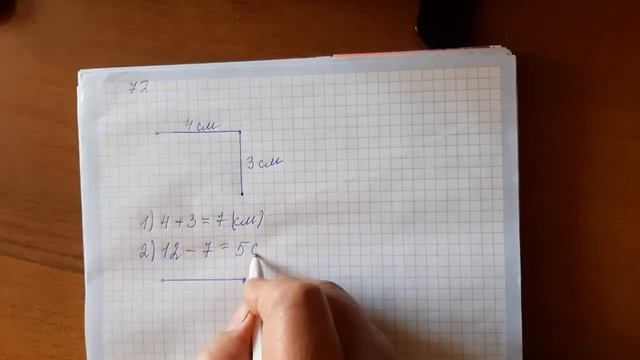 72
4 см
3 см
1) 4 + 3 = 7 (см)
2) 12 - 7 = 5 с